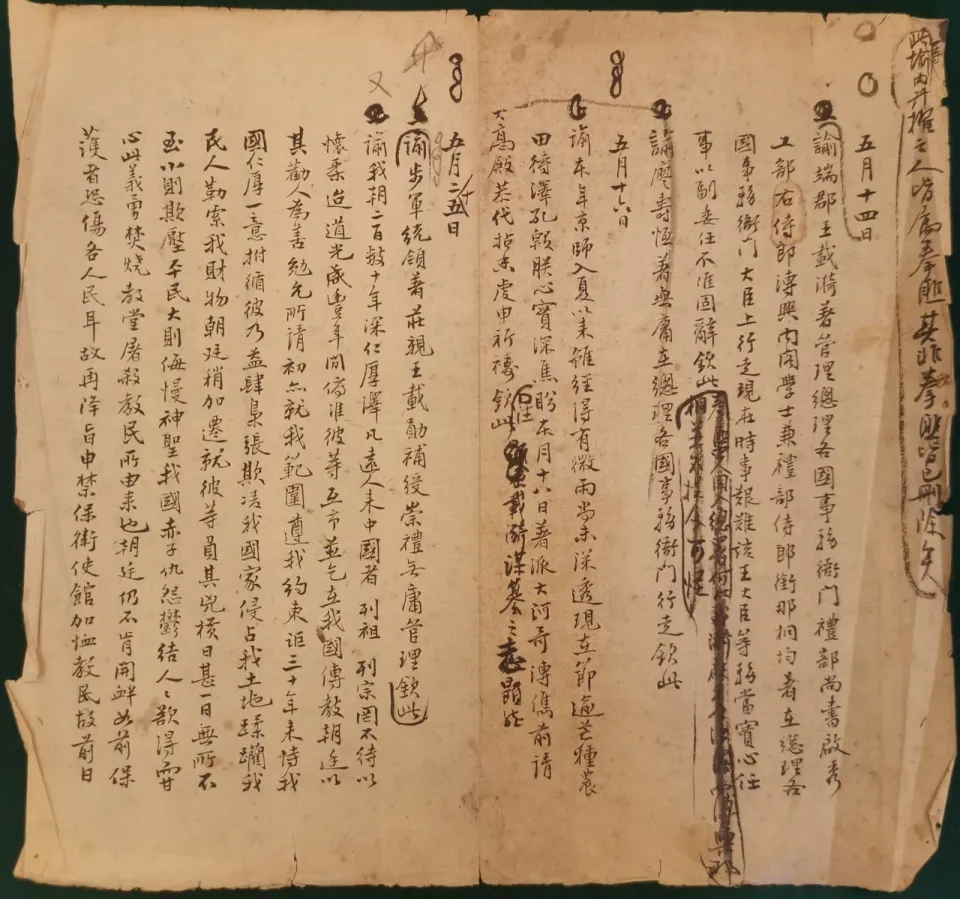 此諭內所擢之人皆屬拳匪其非拳匪皆已刪除矣
五月十四日
諭端郡王載漪著管理總理各國事務衙門禮部尚書啟秀
工部右侍郎溥興內閣學士兼禮部侍郎銜那桐均著在總理各
國事務衙門大臣上行走現在時事艱難該王大臣等務當實心任
事以副委任不准固辭欽此
五月十六日
諭廖壽恆著毋庸在總理各國事務衙門行走欽此
諭本年京師入夏以來雖經得有微雨尚未深透現在節逾芒種農
田待澤孔殷朕心實深焦盼本月十八日著派大阿哥溥儁前詣
大高殿恭代拈香虔申祈禱欽此
載漪謀篡之志顯然
五月二十五日
諭步軍統領著莊親王載勛補授崇禮毋庸管理欽此
又
諭我朝二百數十年深仁厚澤凡遠人來中國者 列祖 列宗罔不待以
懷柔迨道光咸豐年間俯准彼等互市並乞在我國傳教朝廷以
其勸人為善勉允所請初亦就我範圍遵我約束詎三十年來恃我
國仁厚一意拊循彼乃益肆梟張欺凌我國家侵占我土地蹂躪我
民人勒索我財物朝廷稍加遷就彼等負其兇橫日甚一日無所不
至小則欺壓平民大則侮慢神聖我國赤子仇怨鬱結人〻欲得而甘
心此義勇焚燒教堂屠殺教民所由來也朝廷仍不肯開衅如前保
護者恐傷吾人民耳故再降旨申禁保衛使館加恤教民故前日